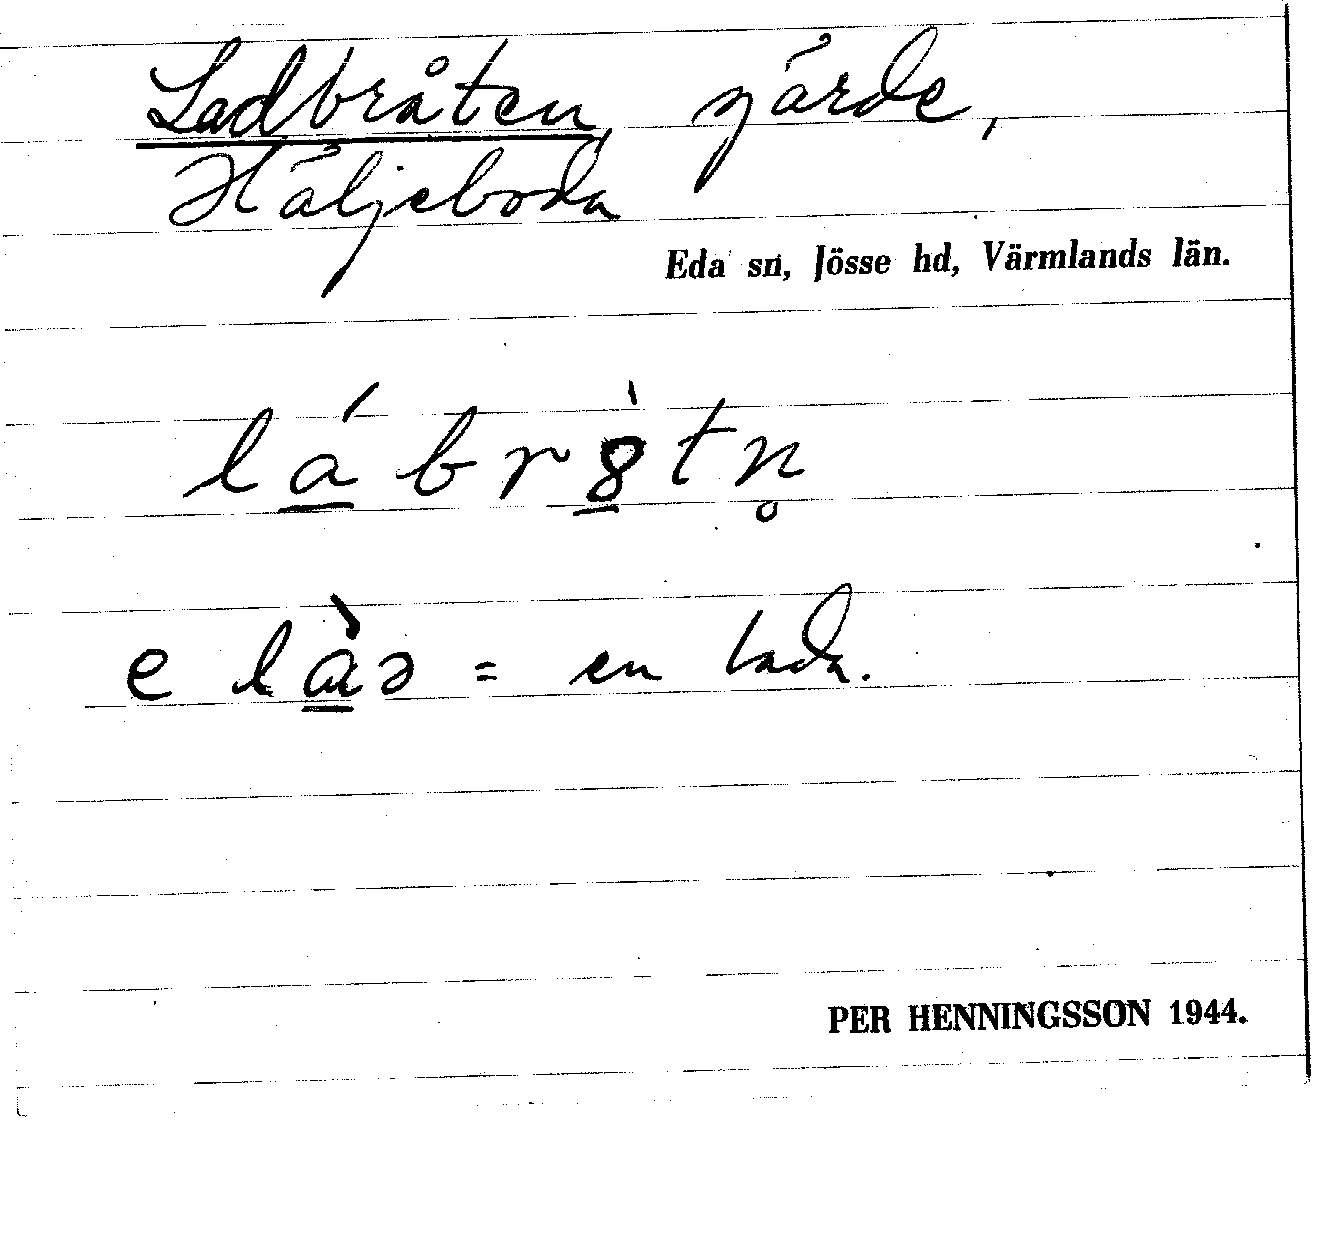 Ladbråten, gärde,
Häljeboda
Eda sn, Jösse hd, Värmlands län.
lá̱brȣ̱̀tn̥
e là̱ə = en lada.
PER HENNINGSSON 1944.